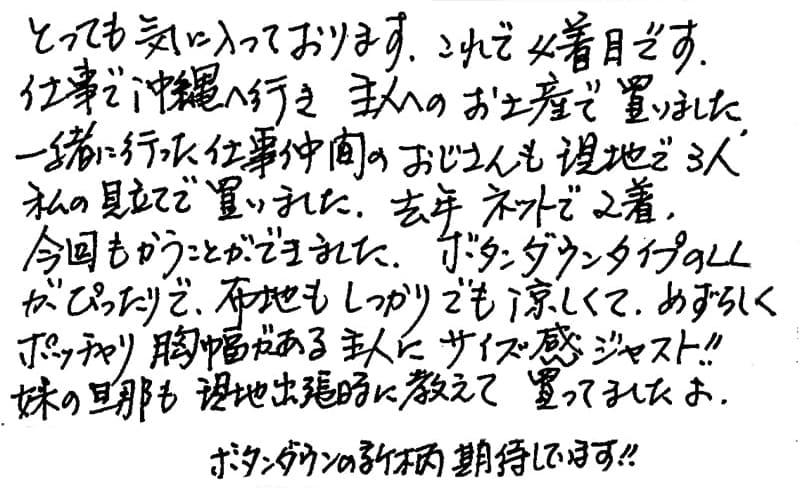 とっても気に入っております。これで4着目です。
仕事で沖縄へ行き 主人へのお土産で買いました。
一緒に行った仕事仲間のおじさんも現地で3人
私の見立てで買いました。去年ネットで2着。
今回もかうことができました。ボタンダウンタイプのLL
がぴったりで、布地もしっかりでも涼しくて。めずらしく
ポッチャリ胸幅がある主人にサイズ感ジャスト!!
妹の旦那も現地出張時に教えて買ってましたよ。
ボタンダウンの新柄期待しています!!